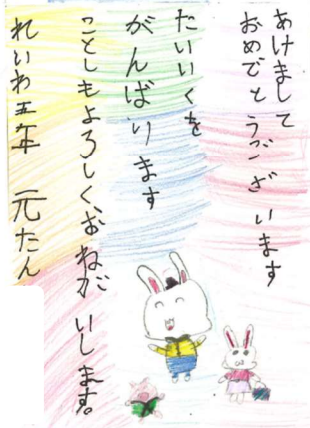 あけまして
おめでとうございます
たいいくを
がんばります
ことしもよろしくおねがいします。
れいわ五年 元たん